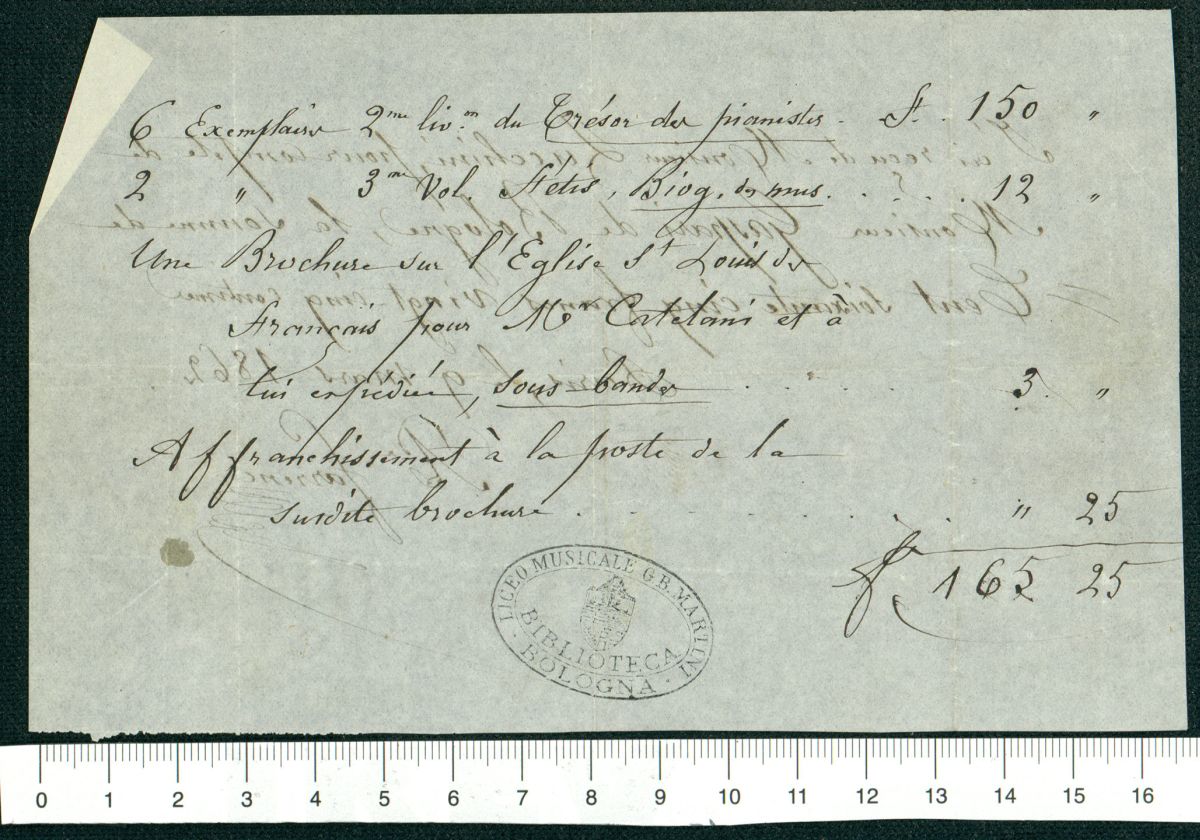 6 Exemplaires 2me liv.on du Trésor des pianistes. f. 150 "
2 " 3me Vol. Fétis, Biog. des mus. . . . . 12 "
Une Brochure sur l'Eglise St Louis des
Français pour Mr Catelani et à
lui expédiée, sous bandes . . . . . 3. "
Affranchissement à la poste de la
susdite brochure . . . . . . . . " 25
f 165 25
LICEO MUSICALE G.B. MARTINI
BIBLIOTECA
· BOLOGNA ·
0 1 2 3 4 5 6 7 8 9 10 11 12 13 14 15 16